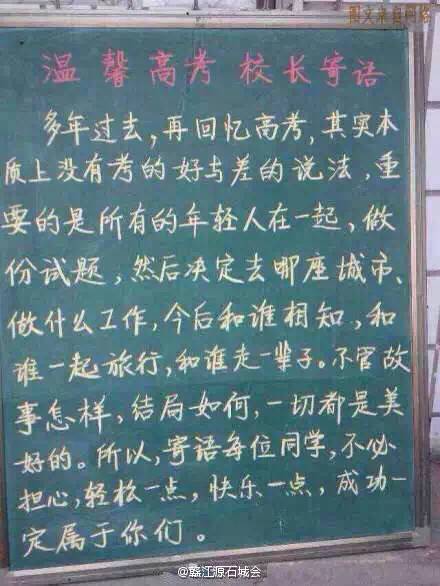 图文来自网络
温馨高考 校长寄语
多年过去，再回忆高考，其实本
质上没有考的好与差的说法，重
要的是所有的年轻人在一起，做
份试题，然后决定去哪座城市、
做什么工作，今后和谁相知，和
谁一起旅行，和谁走一辈子。不管故
事怎样，结局如何，一切都是美
好的。所以，寄语每位同学，不必
担心，轻松一点，快乐一点，成功一
定属于你们。
@赣江源石城会